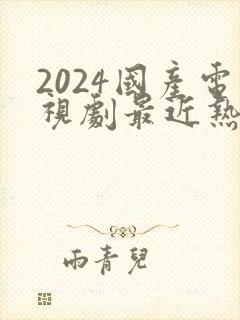 2024國產電
視劇最近熱
雨青兒